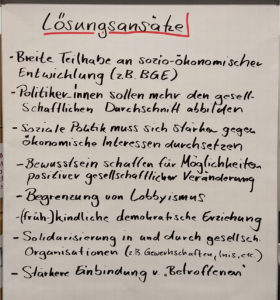 Lösungsansätze
- Breite Teilhabe an sozio-ökonomischer
Entwicklung (z.B. BGE)
- Politiker·innen sollen mehr den gesell-
schaftlichen Durchschnitt abbilden
- Soziale Politik muss sich stärker gegen
ökonomische Interessen durchsetzen
- Bewusstsein schaffen für Möglichkeiten
positiver gesellschaftlicher Veränderung
- Begrenzung von Lobbyismus
- (früh-)kindliche demokratische Erziehung
- Solidarisierung in und durch gesellsch.
Organisationen (z.B. Gewerkschaften, Inis, etc.)
- Stärkere Einbindung v. "Betroffenen"